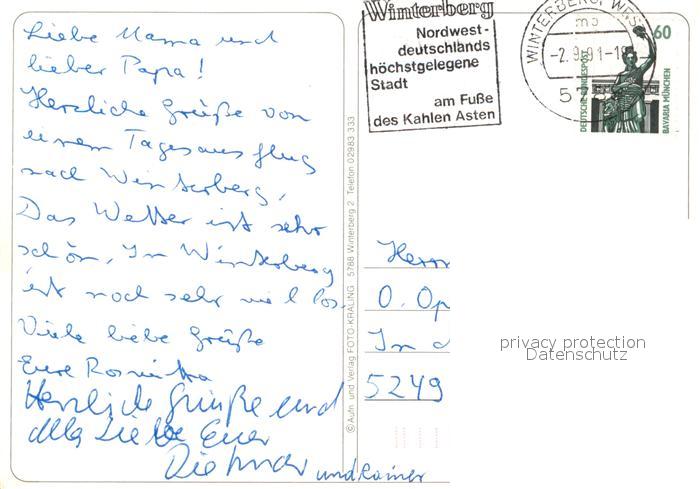 Liebe Mama und
lieber Papa!
Herzliche Grüße von
einem Tagesausflug
nach Winterberg,
Das Wetter ist sehr
schön, In Winterberg
ist noch sehr viel los.
Viele liebe Grüße
Eure
Herzliche Grüße und
alles Liebe Euer
Dietmar und Rainer
© Aufn. und Verlag FOTO-KRALING 5788 Winterberg 2 Telefon 02983 333
Winterberg
Nordwest-
deutschlands
höchstgelegene
Stadt
am Fuße
des Kahlen Asten
WINTERBERG, WEST
mb
-2.9.91-18
60
DEUTSCHE BUNDESPOST
BAVARIA MÜNCHEN
Herrn
O. Op
In d
5249
privacy protection
Datenschutz